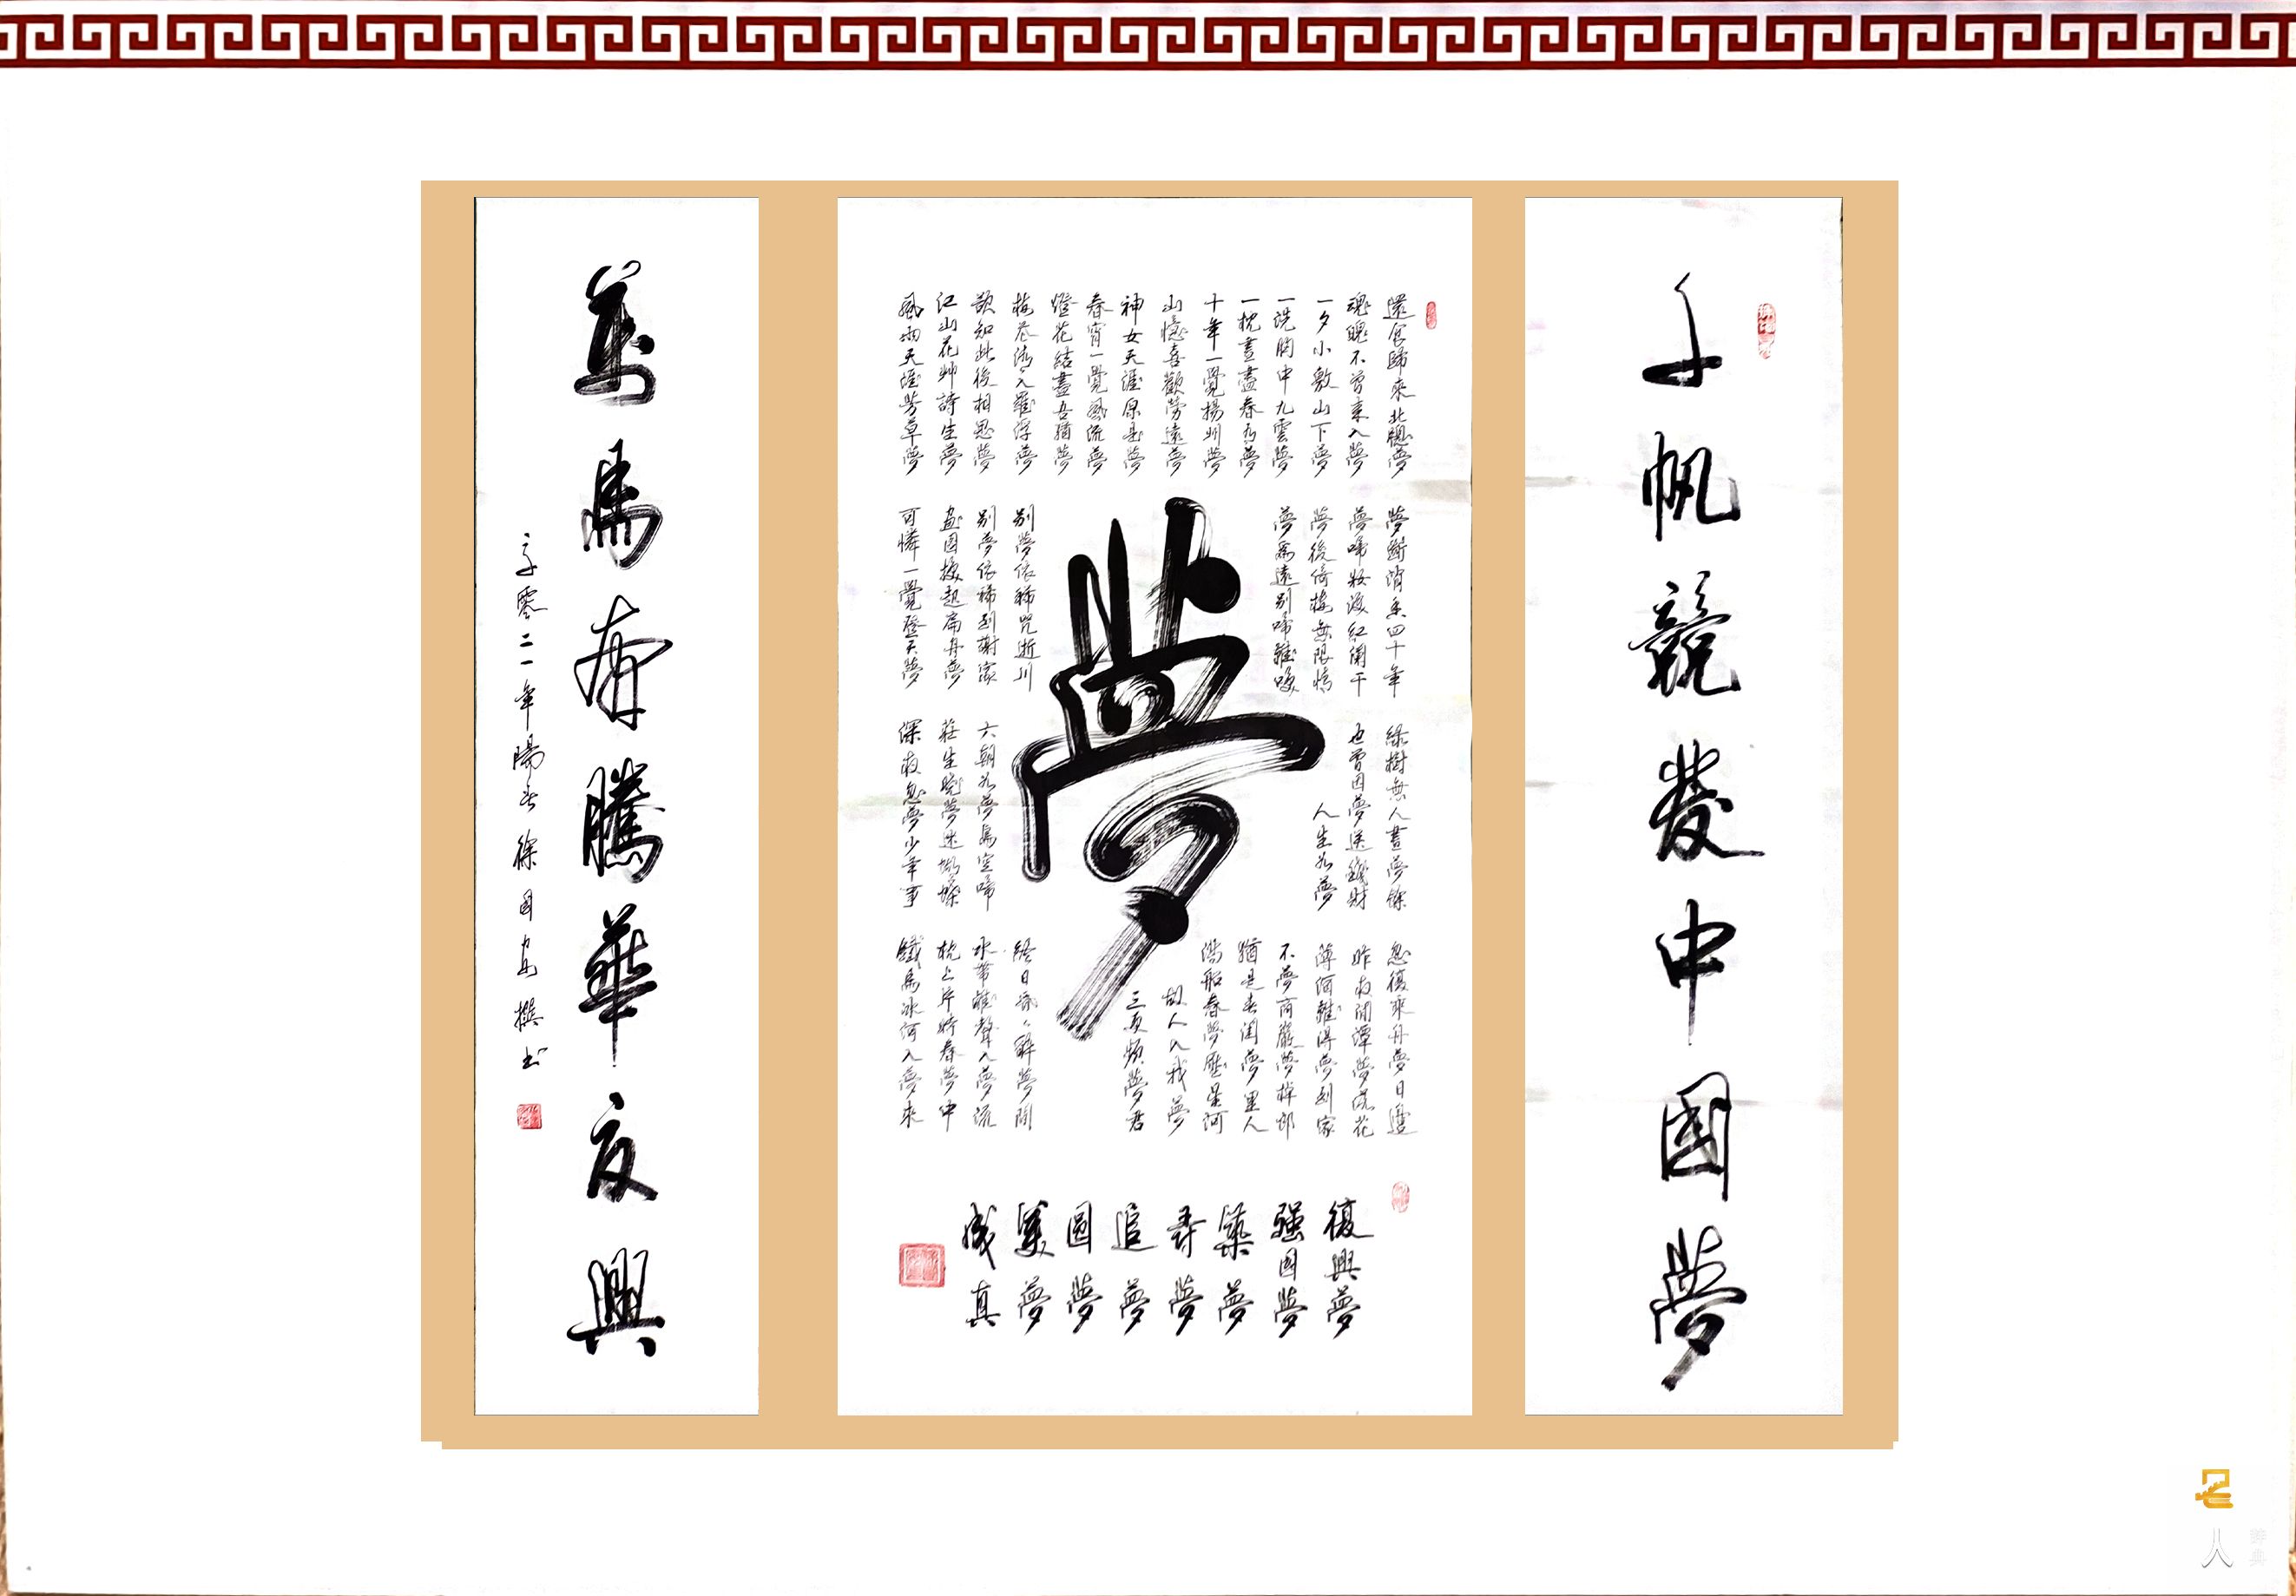 千帆競發中國夢
歸來北牕夢
魂魄不曾來入夢
一夕小敷山下夢
一洗胸中九雲夢
一枕
十年一覺揚州夢
山憶喜歡勞遠夢
神女天涯原是夢
春宵一覺風流夢
燈花結盡吾猶夢
梅花入羅浮夢
欲知此後相思夢
江山花艸詩生夢
風雨天涯芳草夢
夢斷消香四十年
夢啼妝淚紅闌干
夢後倚梅無限情
夢爲遠別啼難喚
別夢依稀咒逝川
別夢依稀到謝家
畫圖換起扁舟夢
可憐一覺登天夢
綠樹無人晝夢餘
也曾因夢送錢財
人生如夢
六朝如夢鳥空啼
莊生曉夢迷蝴蝶
深夜忽夢少年事
忽復乘舟夢日邊
昨夜閒潭夢落花
難得夢到家
不夢商巖夢
猶是春閨夢里人
滿船春夢壓星河
故人入我夢
三夜頻夢君
終日昏昏醉夢間
水帶離聲入夢流
枕上片時春夢中
鐵馬冰河入夢來
夢
復興夢
强國夢
築夢
尋夢
追夢
圓夢
美夢
成真
萬馬奔騰華夏興
零二一年陽春徐國安撰书
人
辞典